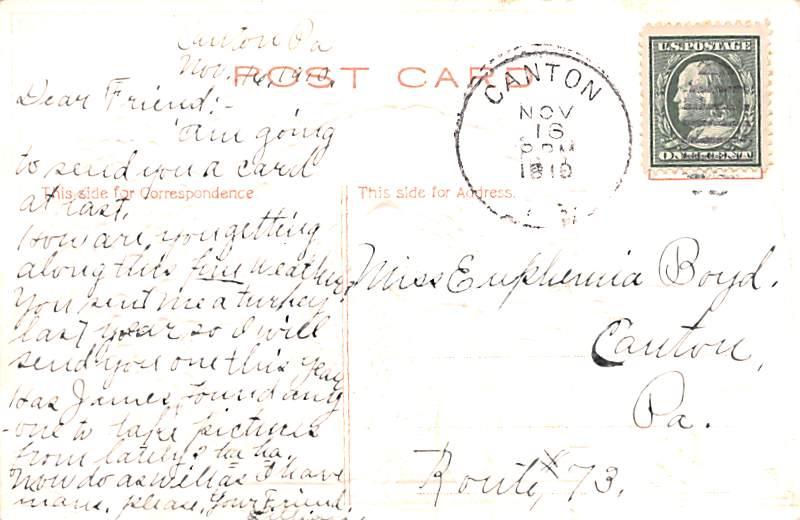 Canton Pa
Nov. 16, 1910.
POST CARD
Dear Friend:-
am going
to send you a card
at last.
How are you getting
along this fine weather.
You sent me a turkey
last year so I will
send you one this year
Has James found any
one to take pictures
from lately? ha ha.
Now do as well as I have
mans. please, Your Friend.
This side for Correspondence
This side for Address.
CANTON
NOV
16
PM
1910
U.S. POSTAGE
ONE CENT
Miss Euphemia Boyd.
Canton,
Pa.
Route 73.